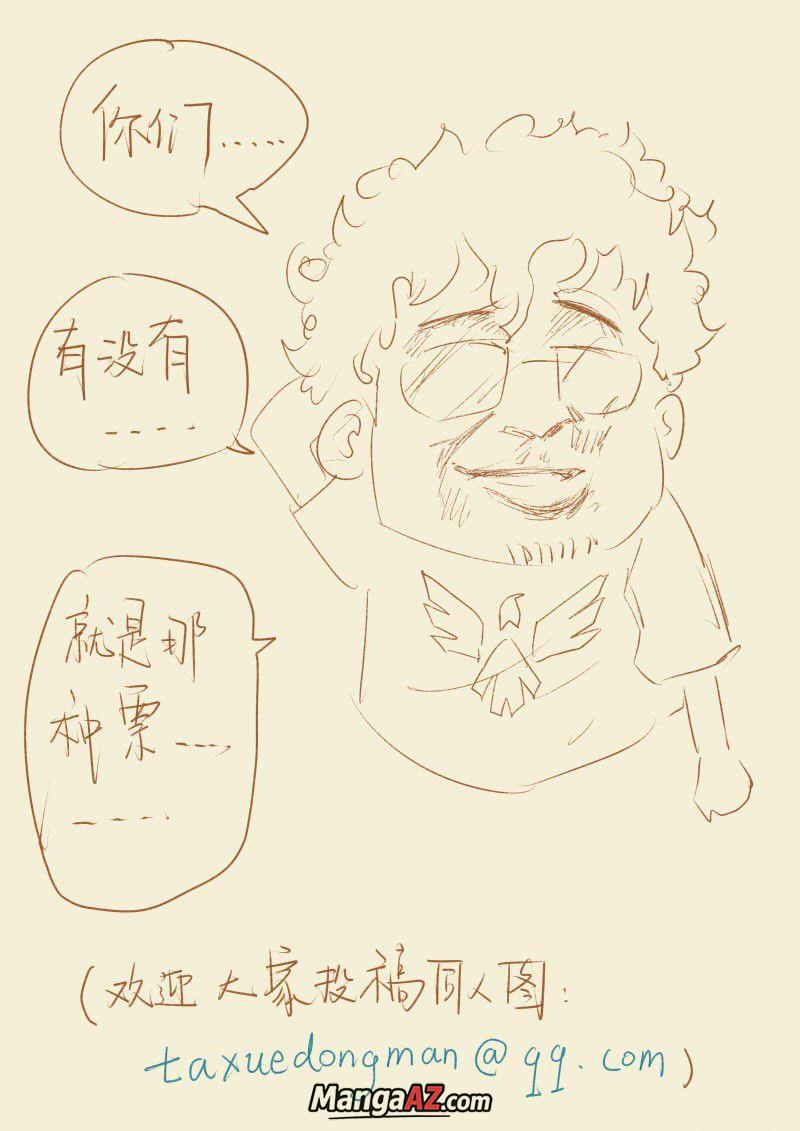 你们......
有没有
----
就是那
种票---
----
(欢迎大家投稿同人图:
taxuedongman@qq.com)
MangaAZ.com